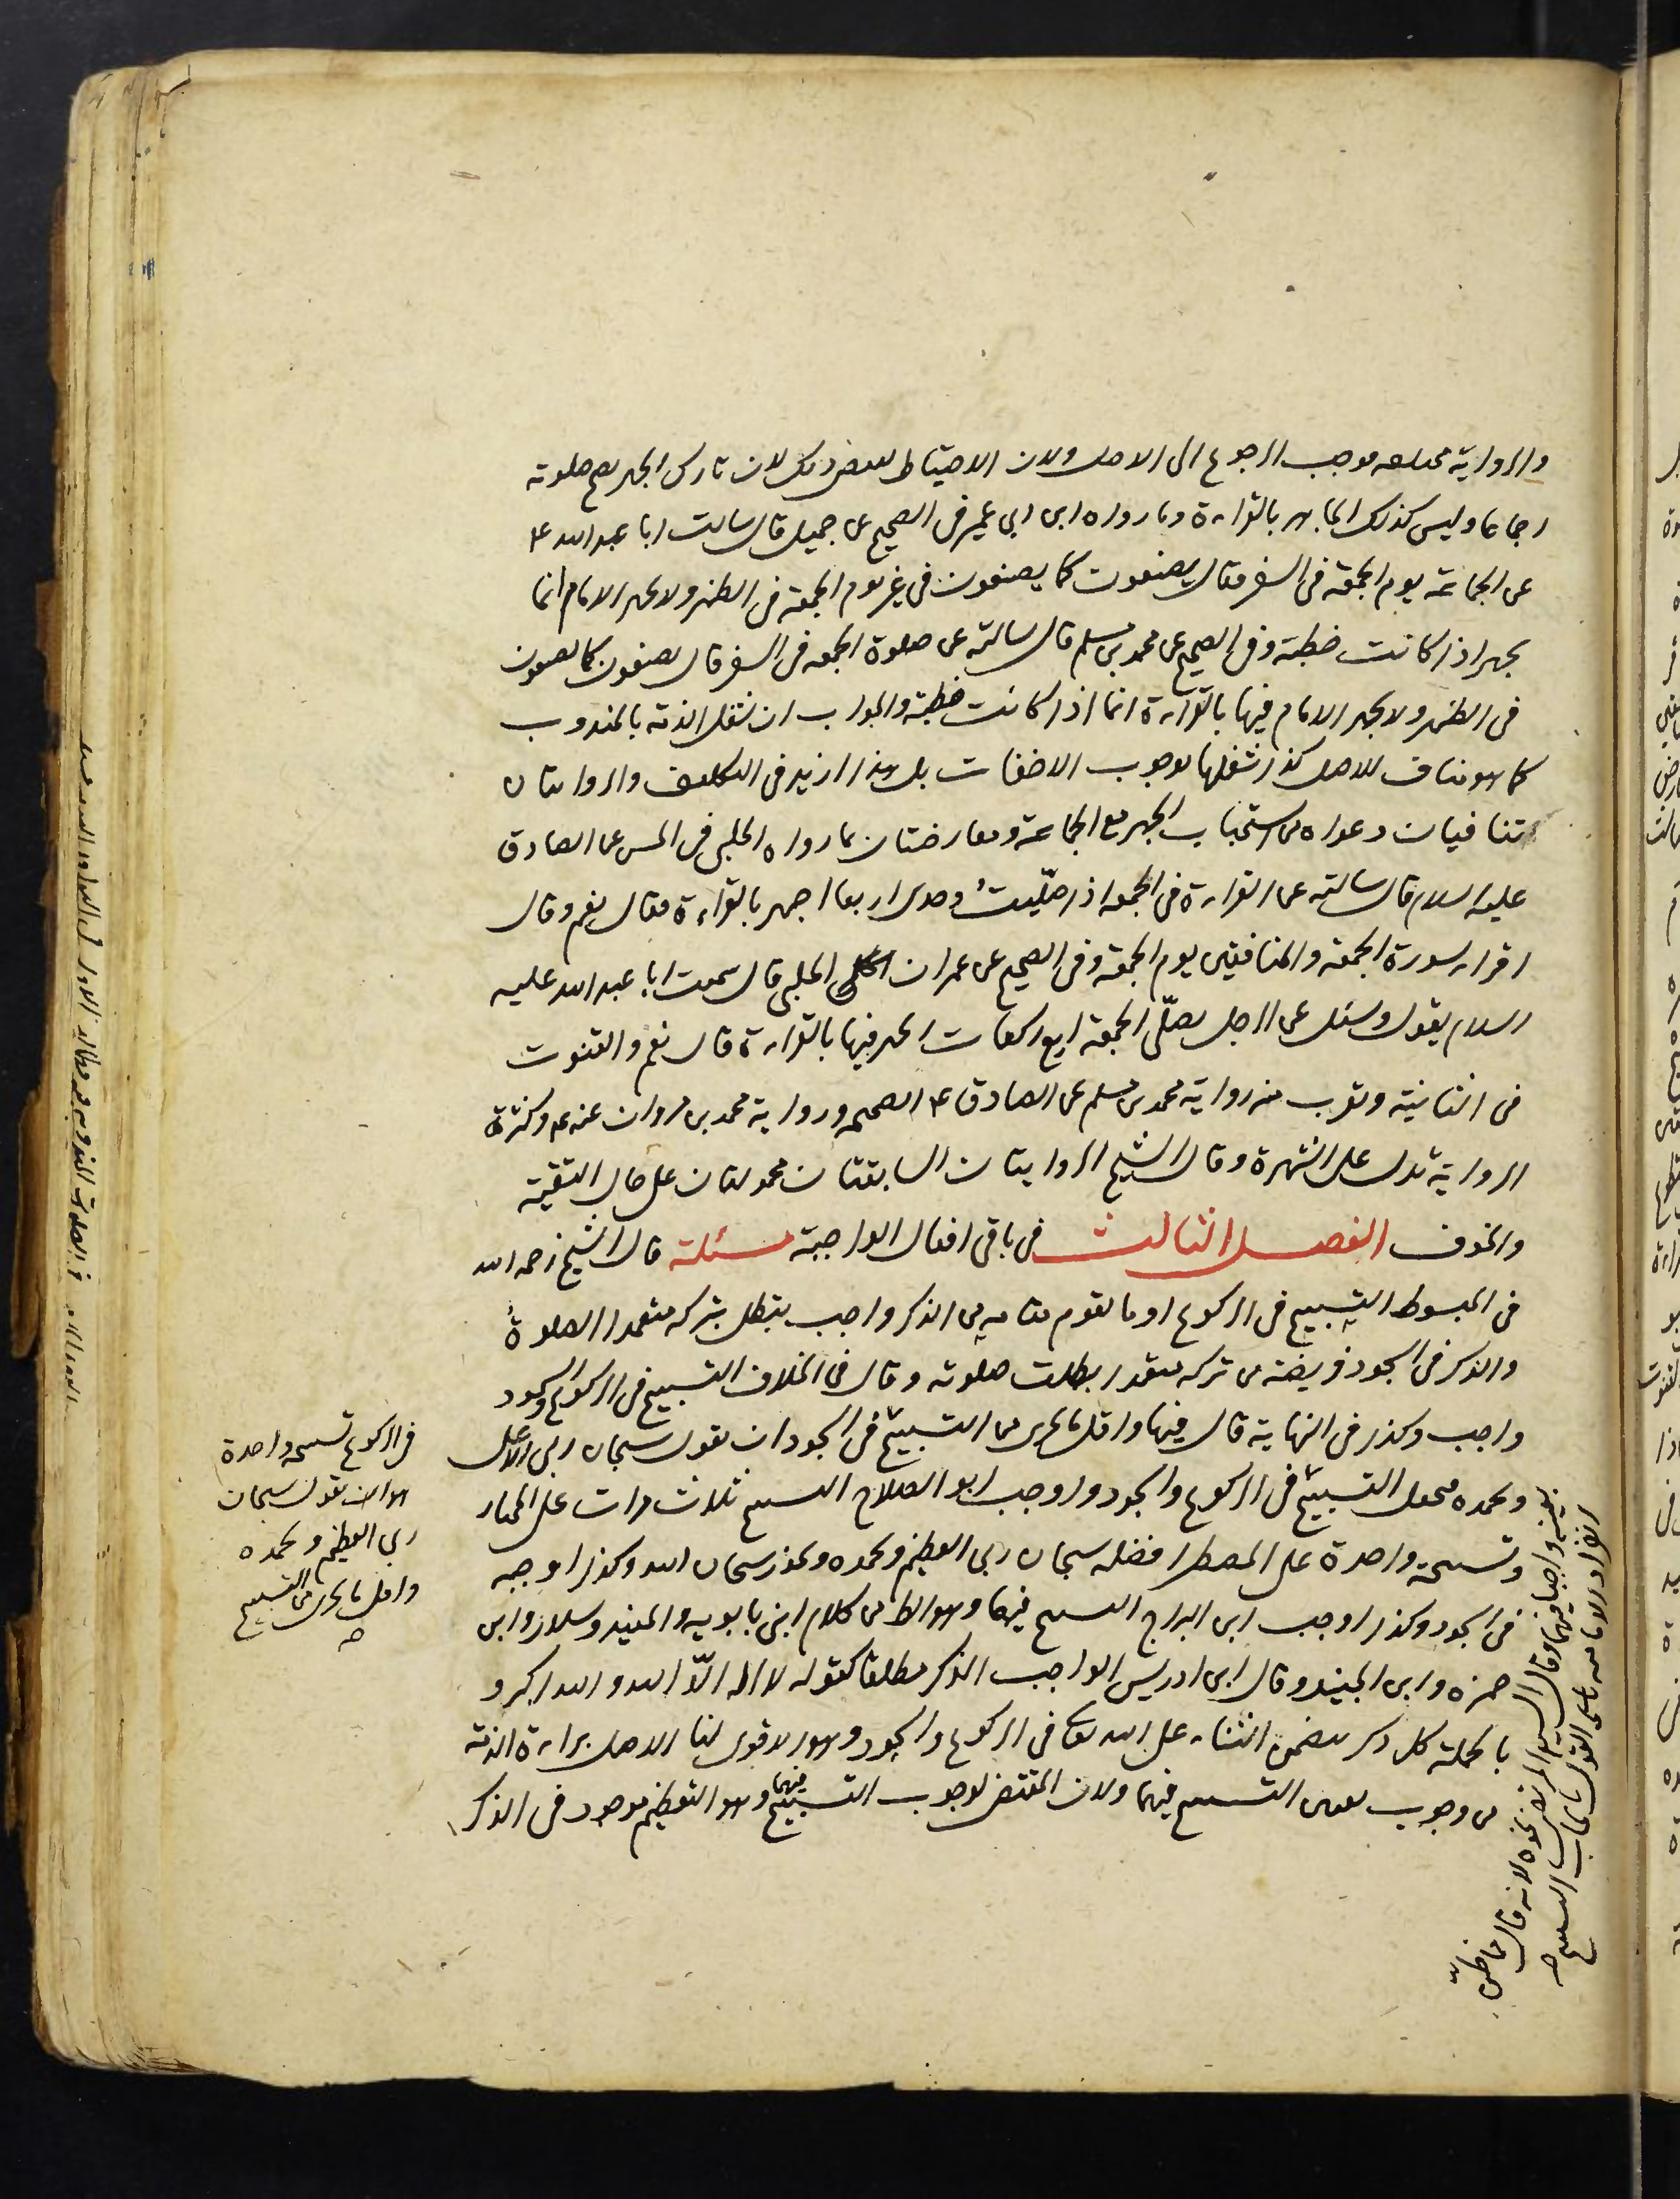 والرواية مختلفة فوجب الرجوع الى الاصل ولان الاحتياط يقتضى ذلك لان تارك الجهر يصح صلوته
اجماعا وليس كذلك الجاهر بالقراءة وما رواه ابن ابي عمير فى الصحيح عن جميل قال سالت ابا عبد الله ع
عن الجماعة يوم الجمعة فى السفر فقال يصنعون كما يصنعون فى غير يوم الجمعة فى الظهر ولا يجهر الامام انما
يجهر اذا كانت خطبة وفى الصحيح عن محمد بن مسلم قال سالته عن صلوة الجمعه فى السفر قال يصنعون كما يصنعون
فى الظهر ولا يجهر الامام فيها بالقراءة انما اذا كانت خطبة والجواب ان شغل الذمة بالمندوب
كما هو مناف للاصل كذا شغلها بوجوب الاخفات بل هذا ازيد فى التكليف والروايتان
تنافيان دعواه من استحباب الجهر مع الجماعة ومعارضتان بما رواه الحلبى فى الحسن عن الصادق
عليه السلام قال سالته عن القراءة فى الجمعه اذا صلّيتُ وحدى اربعا اجهر بالقراءة فقال نعم وقال
اقراء سورة الجمعة والمنافقين يوم الجمعة وفى الصحيح عن عمران الحلبى قال سمعت ابا عبد الله عليه
السلام يقول وسئل عن الرجل يصلّى الجمعة اربع ركعات ايجهر فيها بالقراءة قال نعم والقنوت
فى الثانية وتقرب منه رواية محمد بن مسلم عن الصادق ع الصحيحه ورواية محمد بن مروان عنه ع وكثرة
الرواية تدل على الشهرة وقال الشيخ الروايتان السابقتان محمولتان على حال التقية
والخوف الفصل الثالث فى باقى افعال الواجبة مسئلة قال الشيخ رحمه الله
فى المبسوط التسبيح فى الركوع او ما يقوم مقامه من الذكر واجب يبطل بتركه متعمدا الصلوة
والذكر فى السجود فريضة من تركه متعمدا بطلت صلوته وقال فى الخلاف التسبيح فى الركوع والسجود
واجب وكذا فى النهاية قال فيها واقل ما يجزى من التسبيح فى السجود ان يقول سبحان ربى الاعلى
وبحمده فجعل التسبيح فى الركوع والسجود واوجب ابو الصلاح التسبيح ثلاث مرات على المختار
وتسبيحة واحدة على المضطر افضله سبحان ربى العظيم وبحمده ويجوز سبحان الله وكذا اوجبه
فى السجود وكذا اوجب ابن البراج التسبيح فيهما وهو الظ من كلام ابنى بابويه والمفيد وسلار وابن
حمزه وابن الجنيد وقال ابن ادريس الواجب الذكر مطلقا كقوله لا اله الّا الله والله اكبر و
بالجملة كل ذكر يتضمن الثناء على الله تعا فى الركوع والسجود وهو الاقوى لنا الاصل براءة الذمة
من وجوب تعيين التسبيح فيهما ولان المقتضى لوجوب التسبيح فيهما وهو التعظيم موجود فى الذكر
فى الركوع تسبيحه واحدة
هو ان يقول سبحان
ربى العظيم وبحمده
واقل ما يجزى من التسبيح
صح
بعينه واجبا فيهما وقال السيد المرتضى نحوه لانه قال مما ظن
انفراد الامامية به القول بايجاب التسبيح صح